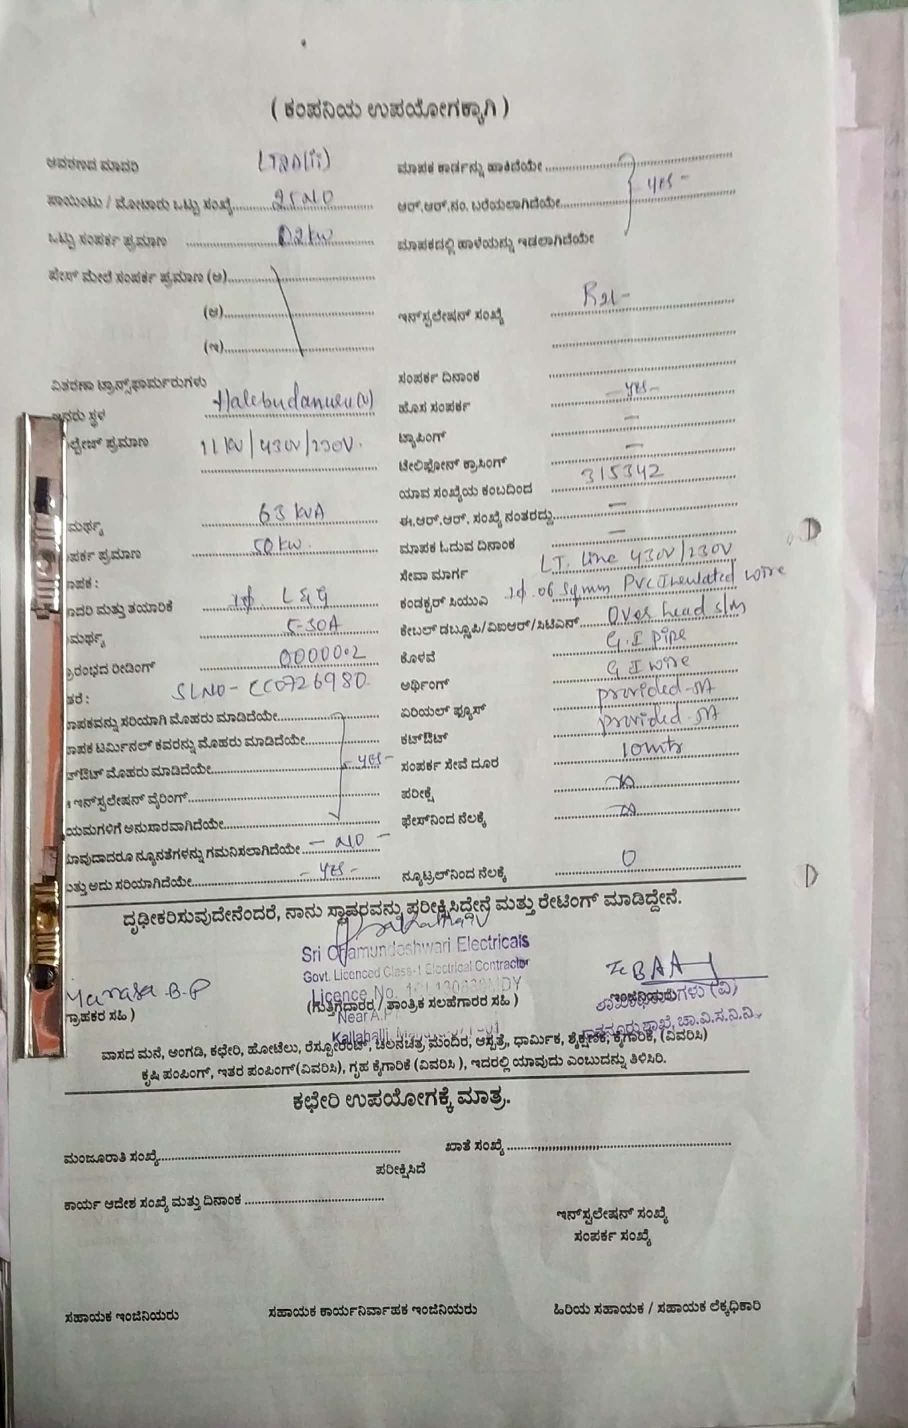 ( ಕಂಪನಿಯ ಉಪಯೋಗಕ್ಕಾಗಿ )
ಆವರಣದ ಮಾದರಿ LT2a(ii)
ಪಾಯಿಂಟು / ಮೋಟಾರು ಒಟ್ಟು ಸಂಖ್ಯೆ 25 NO
ಒಟ್ಟು ಸಂಪರ್ಕ ಪ್ರಮಾಣ 02 kw
ಫೇಸ್ ಮೇಲೆ ಸಂಪರ್ಕ ಪ್ರಮಾಣ (ಅ)
(ಆ)
(ಇ)
ವಿತರಣಾ ಟ್ರಾನ್ಸ್‌ಫಾರ್ಮರುಗಳು
ಇದರು ಸ್ಥಳ Halebudanuru (v)
ಲ್ಟೇಜ್ ಪ್ರಮಾಣ 11 KV / 430V / 230V.
ಮರ್ಥ್ಯ 63 KVA
ಪರ್ಕ ಪ್ರಮಾಣ 50 kw.
ಾಪಕ :
ಾದರಿ ಮತ್ತು ತಯಾರಿಕೆ 1ϕ. L&G
ಮರ್ಥ್ಯ 5-30A
ಾರಂಭದ ರೀಡಿಂಗ್ 00000.2
ತರೆ : SLNO - CC0726980
ಾಪಕವನ್ನು ಸರಿಯಾಗಿ ಮೊಹರು ಮಾಡಿದೆಯೇ
ಾಪಕ ಟರ್ಮಿನಲ್ ಕವರನ್ನು ಮೊಹರು ಮಾಡಿದೆಯೇ
ಟ್‌ಔಟ್ ಮೊಹರು ಮಾಡಿದೆಯೇ - yes -
ಇನ್‌ಸ್ಟಲೇಷನ್ ವೈರಿಂಗ್
ಯಮಗಳಿಗೆ ಅನುಸಾರವಾಗಿದೆಯೇ
ಾವುದಾದರೂ ನ್ಯೂನತೆಗಳನ್ನು ಗಮನಿಸಲಾಗಿದೆಯೇ - NO -
ತ್ತು ಅದು ಸರಿಯಾಗಿದೆಯೇ - yes -
ಮಾಪಕ ಕಾರ್ಡನ್ನು ಹಾಕಿದೆಯೇ
ಆರ್.ಆರ್.ನಂ. ಬರೆಯಲಾಗಿದೆಯೇ yes -
ಮಾಪಕದಲ್ಲಿ ಹಾಳೆಯನ್ನು ಇಡಲಾಗಿದೆಯೇ
ಇನ್‌ಸ್ಟಲೇಷನ್ ಸಂಖ್ಯೆ
ಸಂಪರ್ಕ ದಿನಾಂಕ
ಹೊಸ ಸಂಪರ್ಕ - yes -
ಟ್ಯಾಪಿಂಗ್ -
ಟೇಲಿಫೋನ್ ಕ್ರಾಸಿಂಗ್ -
ಯಾವ ಸಂಖ್ಯೆಯ ಕಂಬದಿಂದ 315342
ಈ.ಆರ್.ಆರ್. ಸಂಖ್ಯೆ ನಂತರದ್ದು -
ಮಾಪಕ ಓದುವ ದಿನಾಂಕ -
ಸೇವಾ ಮಾರ್ಗ L.T. line 430V/230V
ಕಂಡಕ್ಟರ್ ಸಿಯುಎ 1ϕ. 06 Sqmm PVC Insulated wire
ಕೇಬಲ್ ಡಬ್ಲೂಪಿ/ವಿಐಆರ್/ಸಿಟಿಎಸ್ Over head s/m
ಕೊಳವೆ G.I pipe
ಅರ್ಥಿಂಗ್ G I wire
ಏರಿಯಲ್ ಫ್ಯೂಸ್ provided - 5A
ಕಟ್‌ಔಟ್ provided - 5A
ಸಂಪರ್ಕ ಸೇವೆ ದೂರ 10 mts
ಪರೀಕ್ಷೆ
ಫೇಸ್‌ನಿಂದ ನೆಲಕ್ಕೆ
ನ್ಯೂಟ್ರಲ್‌ನಿಂದ ನೆಲಕ್ಕೆ 0
ದೃಢೀಕರಿಸುವುದೇನೆಂದರೆ, ನಾನು ಸ್ಥಾವರವನ್ನು ಪರೀಕ್ಷಿಸಿದ್ದೇನೆ ಮತ್ತು ರೇಟಿಂಗ್ ಮಾಡಿದ್ದೇನೆ.
Sri Chamundeshwari Electricals
Govt. Licenced Class-1 Electrical Contractor
Licence No.
Near A.P
Kallahalli,
Manasa .B.P
ಗ್ರಾಹಕರ ಸಹಿ )
(ಗುತ್ತಿಗೆದಾರರ / ತಾಂತ್ರಿಕ ಸಲಹೆಗಾರರ ಸಹಿ )
ಇಂಜಿನಿಯರು
ವಾಸದ ಮನೆ, ಅಂಗಡಿ, ಕಛೇರಿ, ಹೋಟೆಲು, ರೆಸ್ಟೋರೆಂಟ್, ಚಲನಚಿತ್ರ ಮಂದಿರ, ಆಸ್ಪತ್ರೆ, ಧಾರ್ಮಿಕ, ಶೈಕ್ಷಣಿಕ, ಕೈಗಾರಿಕೆ, (ವಿವರಿಸಿ)
ಕೃಷಿ ಪಂಪಿಂಗ್, ಇತರ ಪಂಪಿಂಗ್(ವಿವರಿಸಿ), ಗೃಹ ಕೈಗಾರಿಕೆ (ವಿವರಿಸಿ ), ಇದರಲ್ಲಿ ಯಾವುದು ಎಂಬುದನ್ನು ತಿಳಿಸಿರಿ.
ಕಛೇರಿ ಉಪಯೋಗಕ್ಕೆ ಮಾತ್ರ.
ಮಂಜೂರಾತಿ ಸಂಖ್ಯೆ ಖಾತೆ ಸಂಖ್ಯೆ
ಪರೀಕ್ಷಿಸಿದೆ
ಕಾರ್ಯ ಆದೇಶ ಸಂಖ್ಯೆ ಮತ್ತು ದಿನಾಂಕ
ಇನ್‌ಸ್ಟಲೇಷನ್ ಸಂಖ್ಯೆ
ಸಂಪರ್ಕ ಸಂಖ್ಯೆ
ಸಹಾಯಕ ಇಂಜಿನಿಯರು ಸಹಾಯಕ ಕಾರ್ಯನಿರ್ವಾಹಕ ಇಂಜಿನಿಯರು ಹಿರಿಯ ಸಹಾಯಕ / ಸಹಾಯಕ ಲೆಕ್ಕಧಿಕಾರಿ